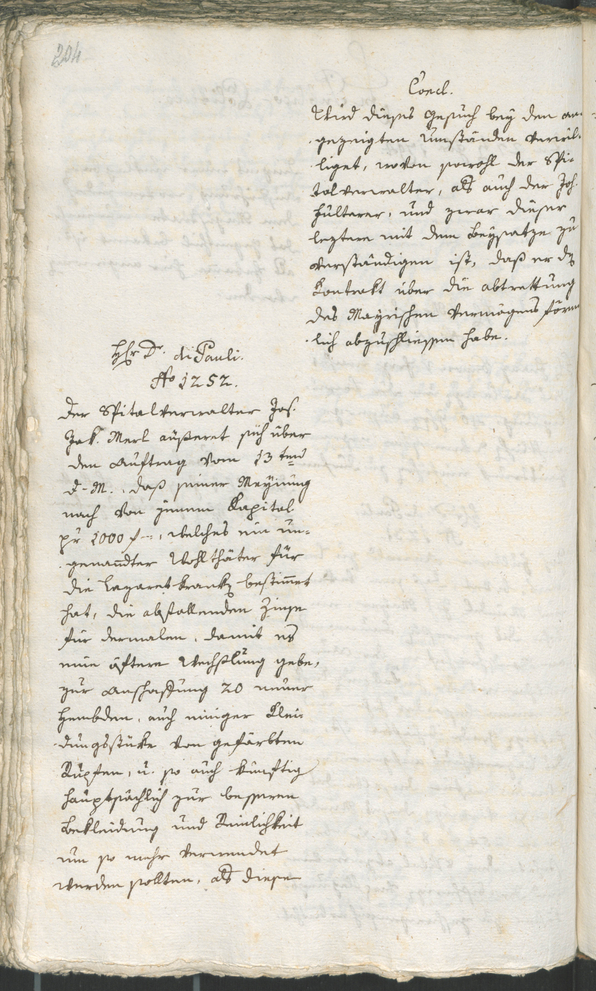 204
Concl.
Wird dieses Gesuch bey den an-
gezeigten Umständen verwil-
liget, wovon sowohl der Spi-
talverwalter, als auch der Joh.
Hülterer, und zwar dieser
leztere mit dem Beysatze zu
verständigen ist, daß er d
Kontrakt über die abtrettung
des Mayrischen Vermögens förm
lich abzuschliessen habe.
Hhr Dr. di Pauli.
No 1252.
Der Spitalverwalter Jos.
Jak. Merl äußeret sich über
den Auftrag vom 13ten
d. M., daß seiner Meynung
nach von jenem Kapital
pr 1000 f, welches ein un-
genannter Wohlthäter für
die Lazaretkranke bestimmt
hat, die abfallenden Zinse
für dermalen, damit es
eine öftere Wechslung gebe,
zur Anschaffung 20 neuer
Hembden, auch einiger Klei-
dungsstüke von gefärbten
Rupfen, u. so auch künftig
hauptsächlich zur besseren
Bekleidung und Reinlichkeit
um so mehr verwendet
werden sollten, als diese